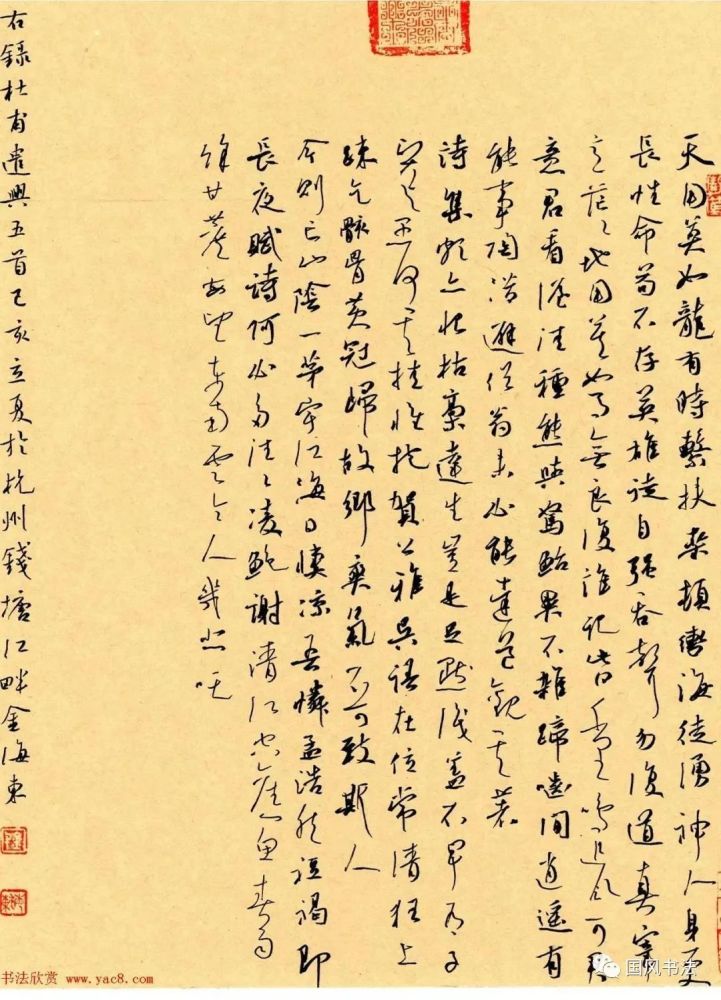 天用莫如龍有時繫扶桑頓轡海徒湧神人身更
長性命苟不存英雄徒自強吞聲勿復道真宰
意茫々地用莫如馬無良復誰記此日千里鳴追風可君
意君看渥洼種態與駑駘異不雜蹄齧間逍遙有
能事陶潛避俗翁未必能達道觀其著
詩集頗亦恨枯槁達生豈是足默識蓋不早有子
賢與愚何其掛懷抱賀公雅吳語在位常清狂上
疎乞骸骨黃冠歸故鄉爽氣不可致斯人
今則亡山陰一茅宇江海日悽涼吾憐孟浩然裋褐即
長夜賦詩何必多往々凌鮑謝清江空舊魚春雨
餘甘蔗每望東南雲令人幾悲吒
右錄杜甫遣興五首己亥立夏於杭州錢塘江畔金海東
书法欣赏 www.yac8.com
国风书法